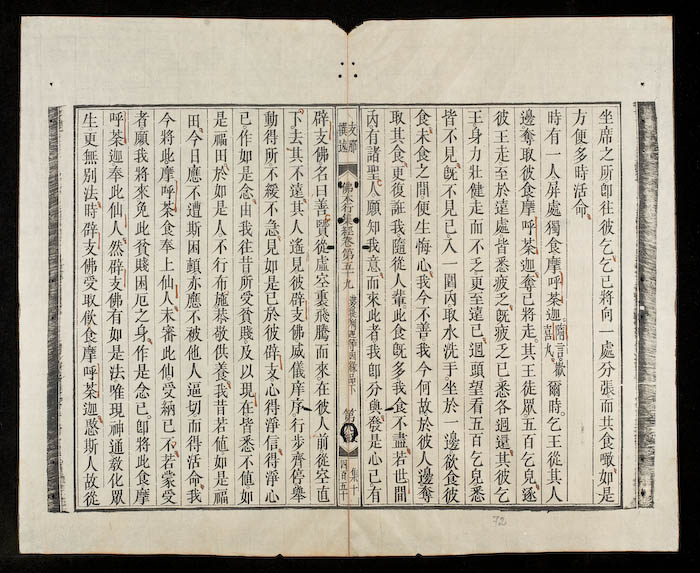 坐席之所即往彼乞乞已將向一處分張而共食噉如是
方便多時活命
時有一人屏處獨食摩呼荼迦隋言歡喜丸爾時乞王從其人
邊奪取彼食摩呼荼迦奪已將走其王徒眾五百乞兒逐
彼王走至於遠處皆悉疲乏旣疲乏已悉各迴還其彼乞
王身力壯健走而不乏更至遠已迴頭望看五百乞兒悉
皆不見旣不見已入一園內取水洗手坐於一邊欲食彼
食未食之間便生悔心我今不善我今何故於彼人邊奪
取其食更復誑我隨從人輩此食旣多我食不盡若世間
內有諸聖人願知我意而來此者我卽分與發是心已有
支那撰述
佛本行集經卷第五十九
品下
第
集十
四百五十
辟支佛名曰善賢從虛空裏飛騰而來在彼人前從空直
下去其不遠其人遙見彼辟支佛威儀庠序行步齊停舉
動得所不緩不急見如是已於彼辟支心得淨信得淨心
已作如是念由我往昔所受貧賤及以現在皆悉不値如
是福田於如是人不行布施恭敬供養我昔若値如是福
田今日應不遭斯困頓亦應不被他人逼切而得活命我
今將此摩呼荼迦食奉上仙人未審此仙受納已不若蒙受
者願我將來免此貧賤困厄之身作是念已卽將此食摩
呼荼迦奉此仙人然辟支佛有如是法唯現神通敎化眾
生更無別法時辟支佛受取飲食摩呼荼迦愍斯人故從
72